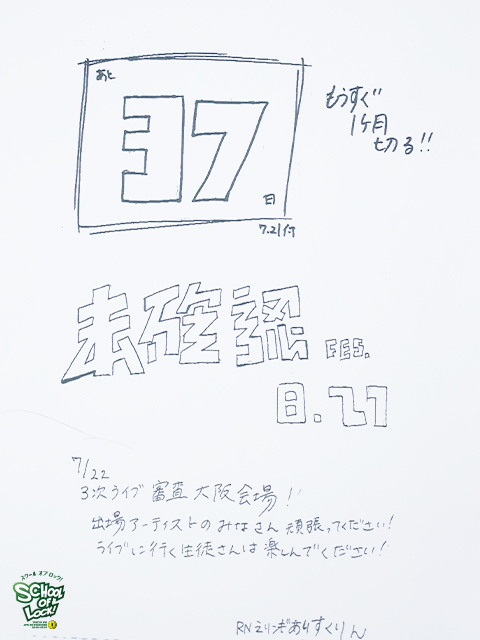 あと
37
日
7.21付
もうすぐ
1ヶ月
切る!!
未確認
FES.
8.27
7/22
3次ライブ審査 大阪会場!!
出場アーティストのみなさん 頑張ってください!
ライブに行く生徒さんは楽しんでください!
スクール オブ ロック!
SCHOOL
OF
LOCK!